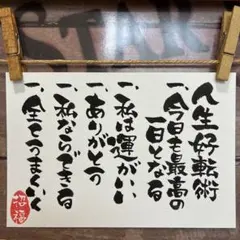 人生好転術
一、今日も最高の
一日となる
一、私は運がいい
一、ありがとう
一、私ならできる
一、全てうまくいく
招福